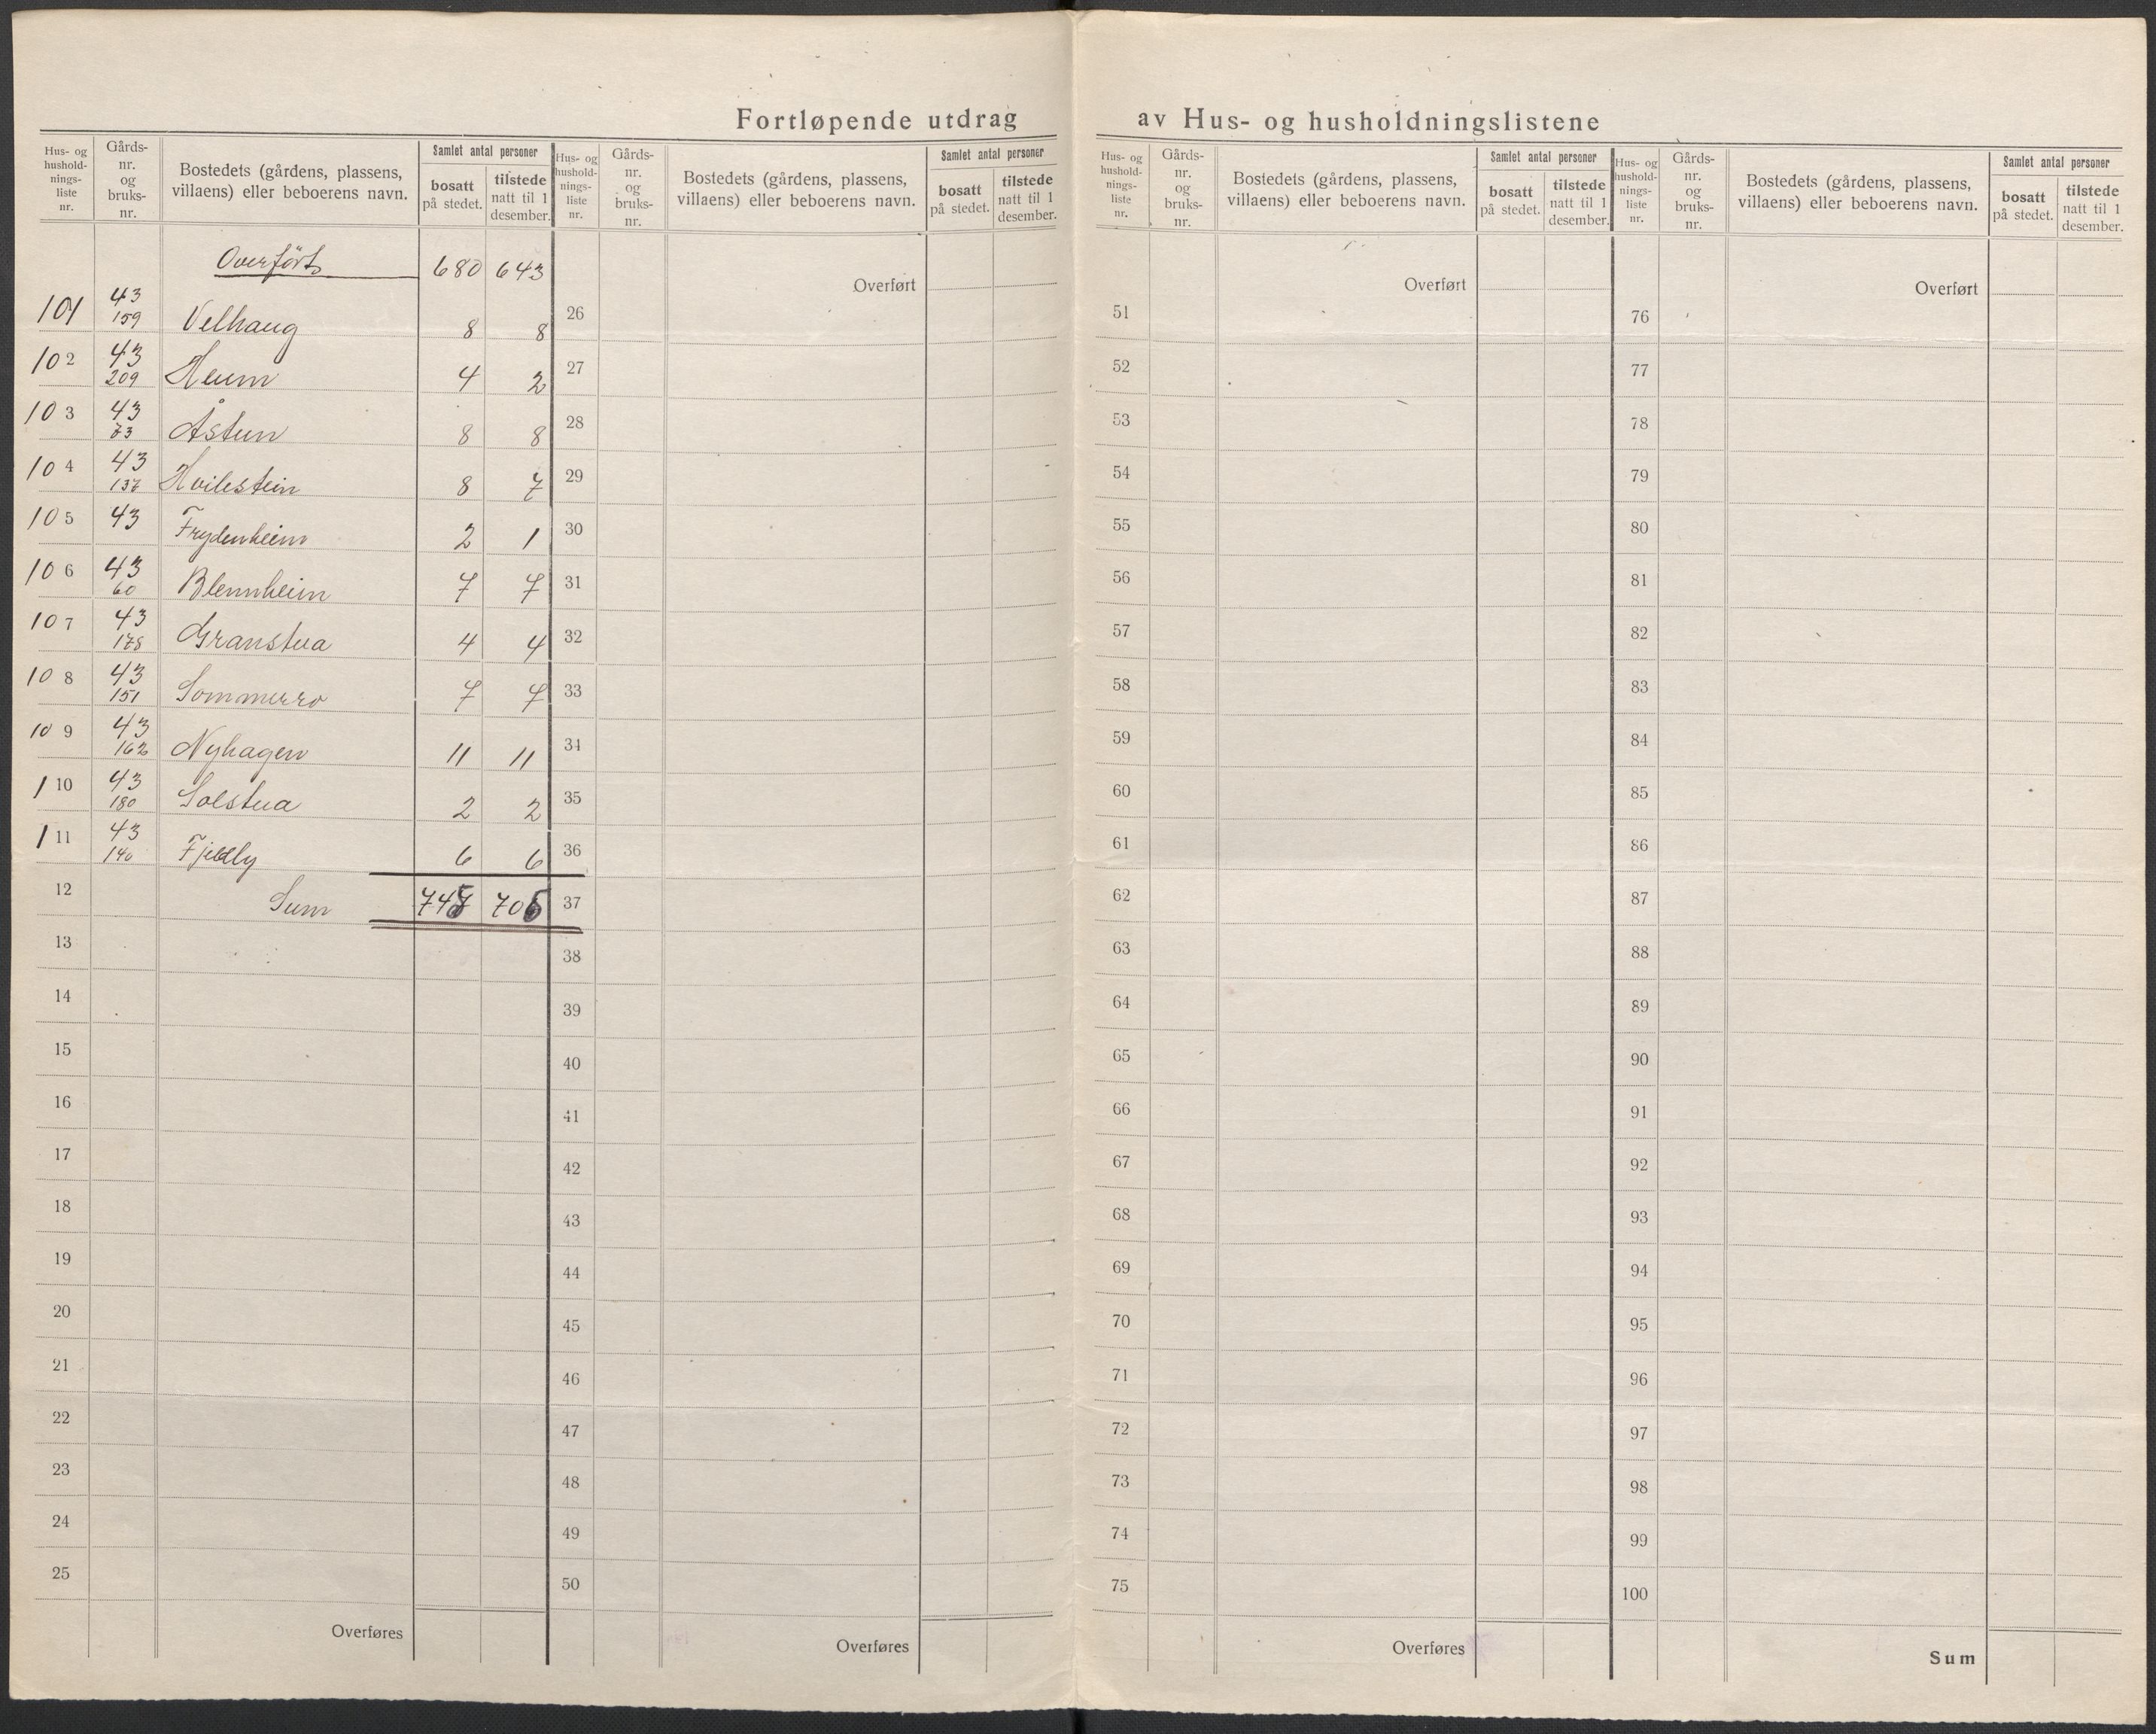 Fortløpende utdrag av Hus- og husholdningslistene
Hus- og hushold- nings- liste nr. | Gårds- nr. og bruks- nr. | Bostedets (gårdens, plassens, villaens) eller beboerens navn. | Samlet antal personer | bosatt på stedet. | tilstede natt til 1 desember.
Overført 680 643
101 43 159 Velhaug 8 8
102 43 209 Heum 4 2
103 43 73 Åstun 8 8
104 43 137 Hvilestein 8 7
105 43 Frydenheim 2 1
106 43 60 Blennheim 7 7
107 43 178 Granstua 4 4
108 43 151 Sommerro 7 7
109 43 162 Nyhagen 11 11
110 43 180 Solstua 2 2
111 43 140 Fjeldly 6 6
12 Sum 706
13
14
15
16
17
18
19
20
21
22
23
24
25
Overføres
Hus- og hushold- nings- liste nr. | Gårds- nr. og bruks- nr. | Bostedets (gårdens, plassens, villaens) eller beboerens navn. | Samlet antal personer | bosatt på stedet. | tilstede natt til 1 desember.
Overført
26
27
28
29
30
31
32
33
34
35
36
37
38
39
40
41
42
43
44
45
46
47
48
49
50
Overføres
Hus- og hushold- nings- liste nr. | Gårds- nr. og bruks- nr. | Bostedets (gårdens, plassens, villaens) eller beboerens navn. | Samlet antal personer | bosatt på stedet. | tilstede natt til 1 desember.
Overført
51
52
53
54
55
56
57
58
59
60
61
62
63
64
65
66
67
68
69
70
71
72
73
74
75
Overføres
Hus- og hushold- nings- liste nr. | Gårds- nr. og bruks- nr. | Bostedets (gårdens, plassens, villaens) eller beboerens navn. | Samlet antal personer | bosatt på stedet. | tilstede natt til 1 desember.
Overført
76
77
78
79
80
81
82
83
84
85
86
87
88
89
90
91
92
93
94
95
96
97
98
99
100
Sum